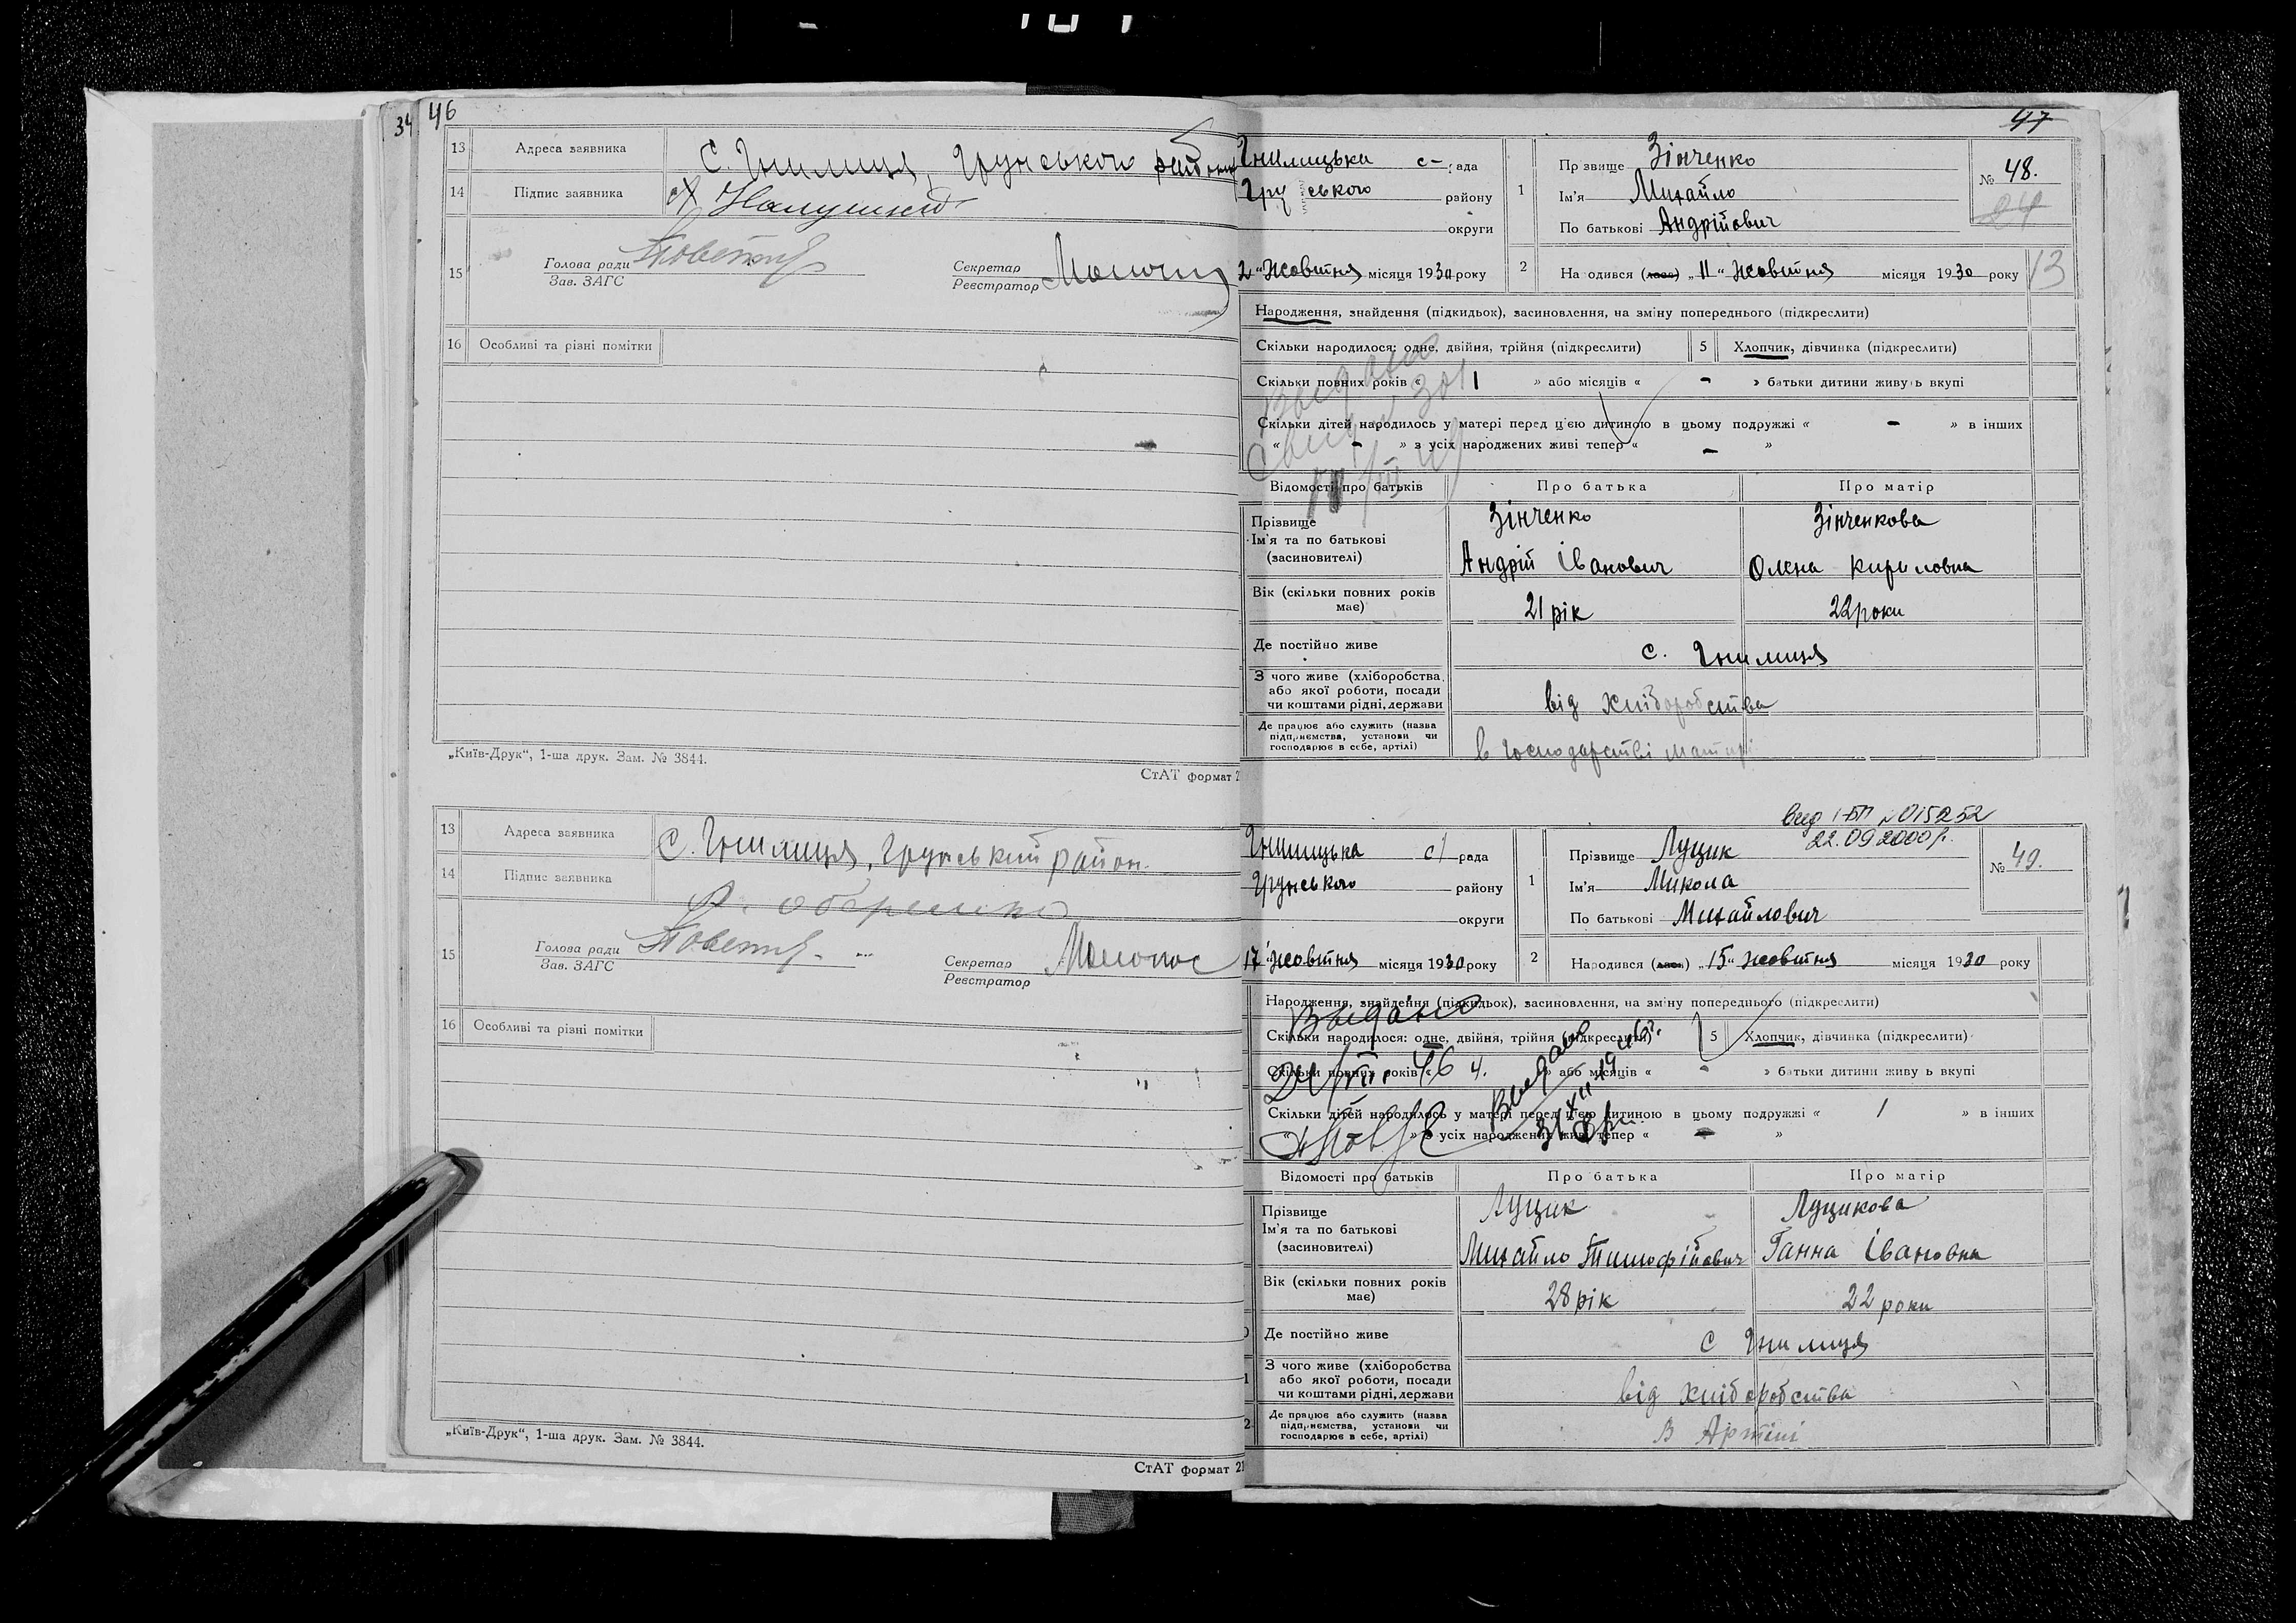 46
34
13 Адреса заявника С. Гнилиця, Грунського району
14 Підпис заявника
15 Голова ради Секретар
Зав. ЗАГС Реєстратор
16 Особливі та різні помітки
„Київ-Друк“, 1-ша друк. Зам. № 3844.
СтАТ формат 2
13 Адреса заявника С. Гнилиця, Грунський район.
14 Підпис заявника
15 Голова ради Секретар
Зав. ЗАГС Реєстратор
16 Особливі та різні помітки
„Київ-Друк“, 1-ша друк. Зам. № 3844.
СтАТ формат 21
47
Гнилицька с- рада
Грунського району
округи
2 “ Жовтня місяця 1930 року
1 Прізвище Зінченко
Ім'я Михайло
По батькові Андрійович
№ 48.
84
2 На одився (лась) „ 11 “ Жовтня місяця 1930 року
13
Народження, знайдення (підкидьок), засиновлення, на зміну попереднього (підкреслити)
Скільки народилося: одне, двійня, трійня (підкреслити) 5 Хлопчик, дівчинка (підкреслити)
Скільки повних років « 1 » або місяців « - » батьки дитини живуть вкупі
Скільки дітей народилось у матері перед цією дитиною в цьому подружжі « - » в інших
« - » з усіх народжених живі тепер « - »
Відомості про батьків Про батька Про матір
Прізвище Зінченко Зінченкова
Ім'я та по батькові
(засиновителі) Андрій Іванович Олена Кириловна
Вік (скільки повних років
має) 21 рік 22 роки
Де постійно живе с. Гнилиця
З чого живе (хліборобства,
або якої роботи, посади
чи коштами рідні, держави від хліборобства
Де працює або служить (назва
підприємства, установи чи
господарює в себе, артілі) в господарстві матері
вид І-БП №015252
22.09.2000р.
Гнилицька с/ рада
Грунського району
округи
17 “ Жовтня місяця 1930 року
1 Прізвище Луцик
Ім'я Микола
По батькові Михайлович
№ 49.
2 Народився (лась) „ 15 “ Жовтня місяця 1930 року
Народження, знайдення (підкидьок), засиновлення, на зміну попереднього (підкреслити)
Выдано
Скільки народилося: одне, двійня, трійня (підкреслити) 5 Хлопчик, дівчинка (підкреслити)
Скільки повних років « 4. » або місяців « - » батьки дитини живу ь вкупі
Скільки дітей народилось у матері перед цією дитиною в цьому подружжі « 1 » в інших
» з усіх народжених живі тепер « - »
Відомості про батьків Про батька Про матір
Прізвище Луцик Луцикова
Ім'я та по батькові
(засиновителі) Михайло Тимофійович Ганна Івановна
Вік (скільки повних років
має) 28 рік 22 роки
Де постійно живе с Гнилиця
З чого живе (хліборобства
або якої роботи, посади
чи коштами рідні, держави від хліборобства
Де працює або служить (назва
підприємства, установи чи
господарює в себе, артілі) В Артілі